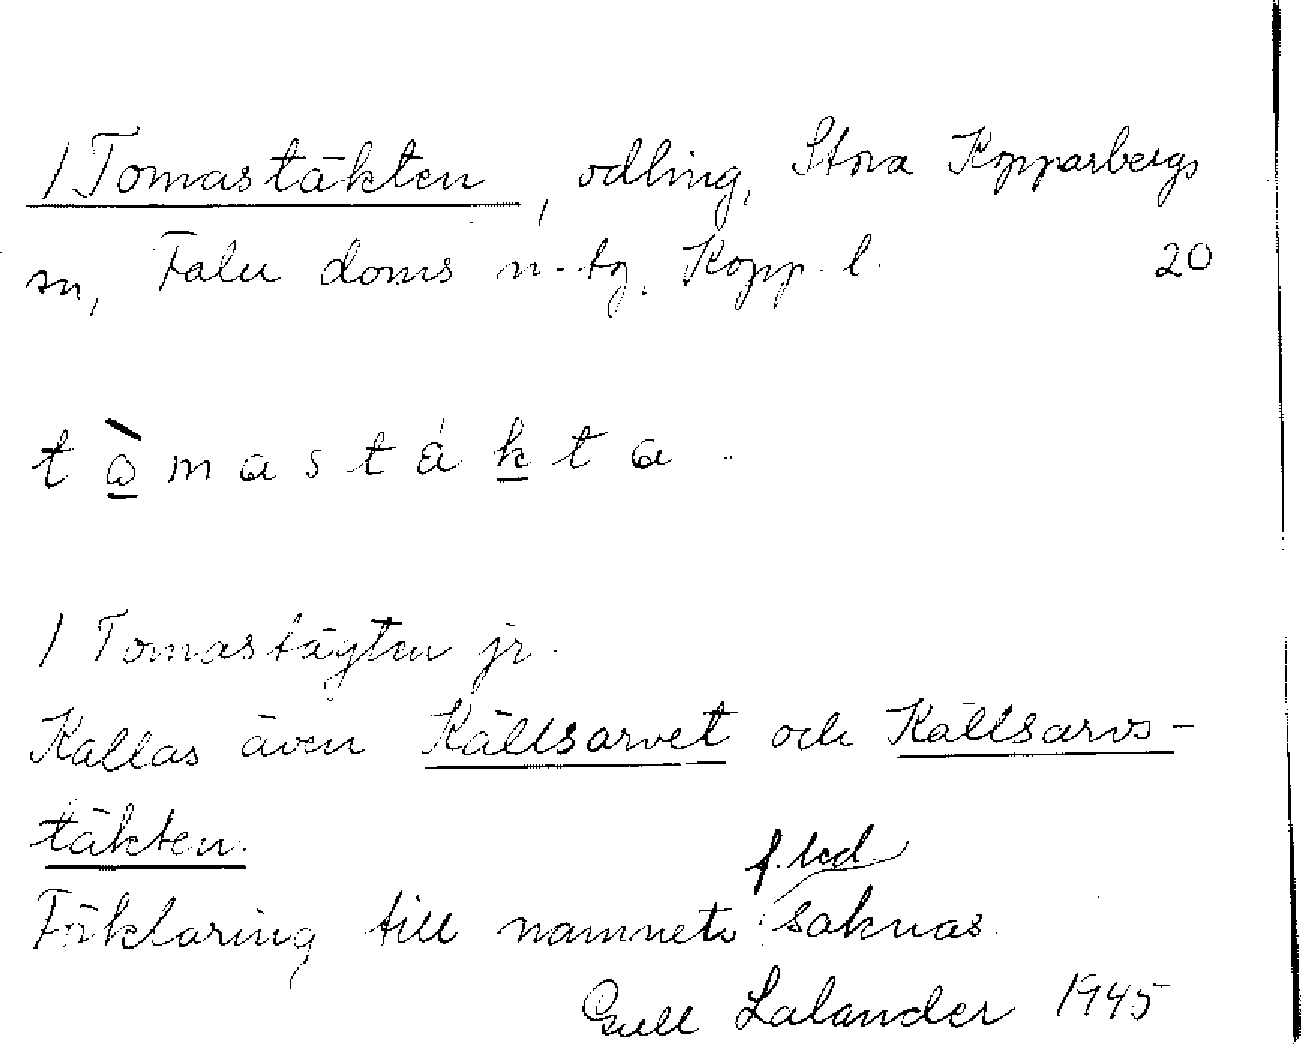 / Tomastäkten, odling, Stora Kopparbergs
sn, Falu doms n. tg, Kopp. l. 20
tòmastákta.
/ Tomastägten jr.
Kallas även Källsarvet och Källsarvs-
täkten.
f.led
Förklaring till namnets saknas.
Gull Lalander 1945